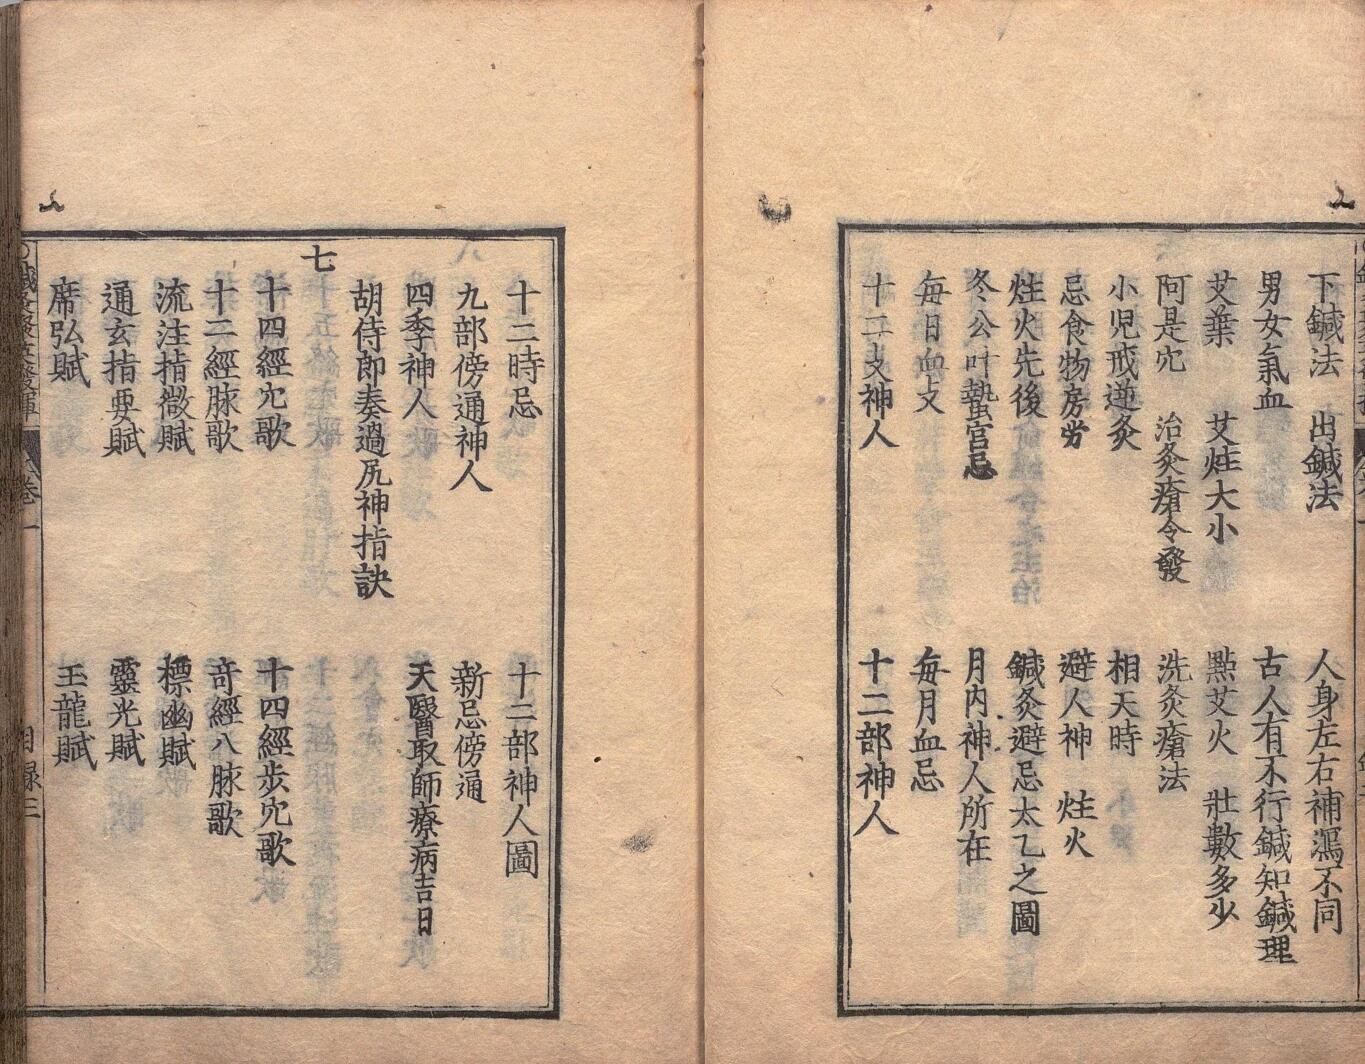 下鍼法 出鍼法 人身左右補瀉不同
男女氣血 古人有不行鍼知鍼理
艾葉 艾炷大小 點艾火 壯數多少
阿是穴 治灸瘡令發 洗灸瘡法
小児戒逆灸 相天時
忌食物房労 避人神 炷火
炷火先後 鍼灸避忌太乙之圖
冬公叶蟄宮忌 月內神人所在
每日血支 每月血忌
十二支神人 十二部神人
十二時忌 十二部神人圖
九部傍通神人 新忌傍通
四季神人 天醫取師療病吉日
七
胡侍郎奏過尻神指訣
十四經穴歌 十四經步穴歌
十二經脉歌 奇經八脉歌
流注指微賦 標幽賦
通玄指要賦 靈光賦
席弘賦 玉龍賦
卷一
目錄三